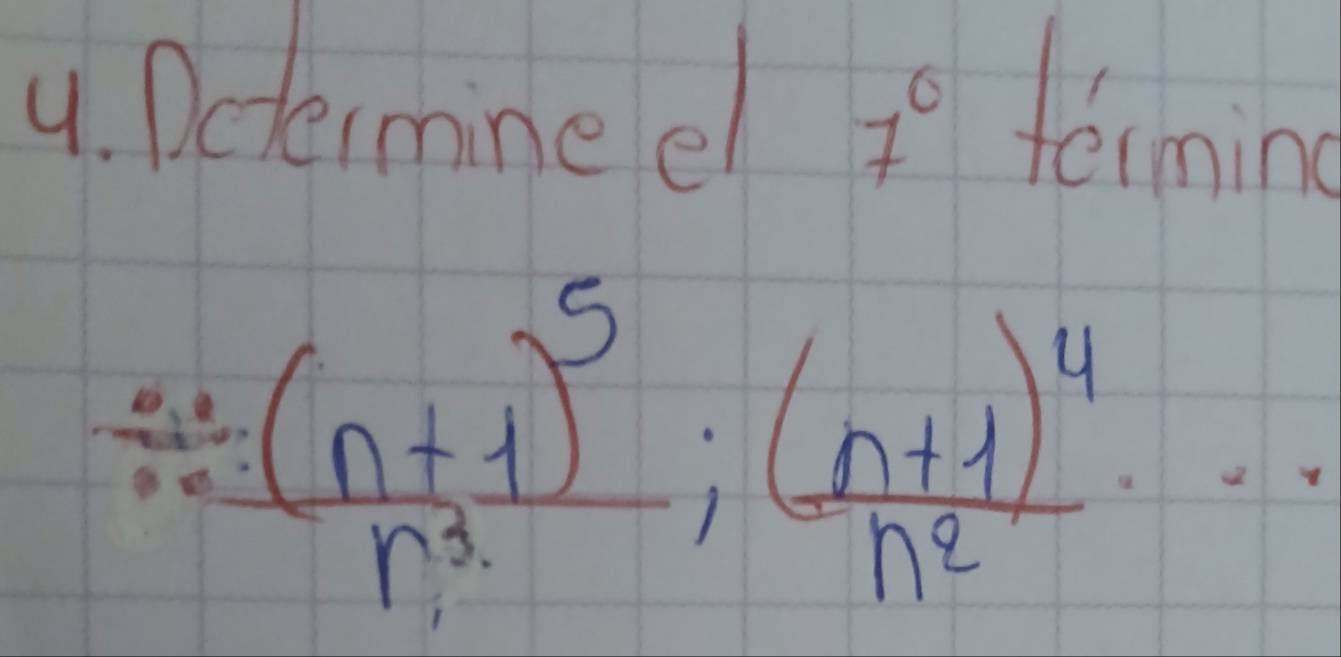 4. Determine el 7° término
∺: (n+1)^5 / n^3 ; (n+1)^4 / n^2 ....